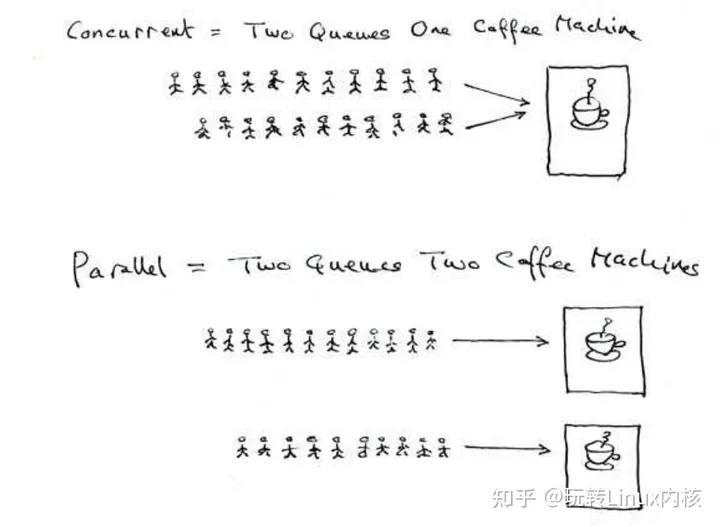 Concurrent = Two Queues One Coffee Machine
Parallel = Two Queues Two Coffee Machines
知乎 @玩转Linux内核